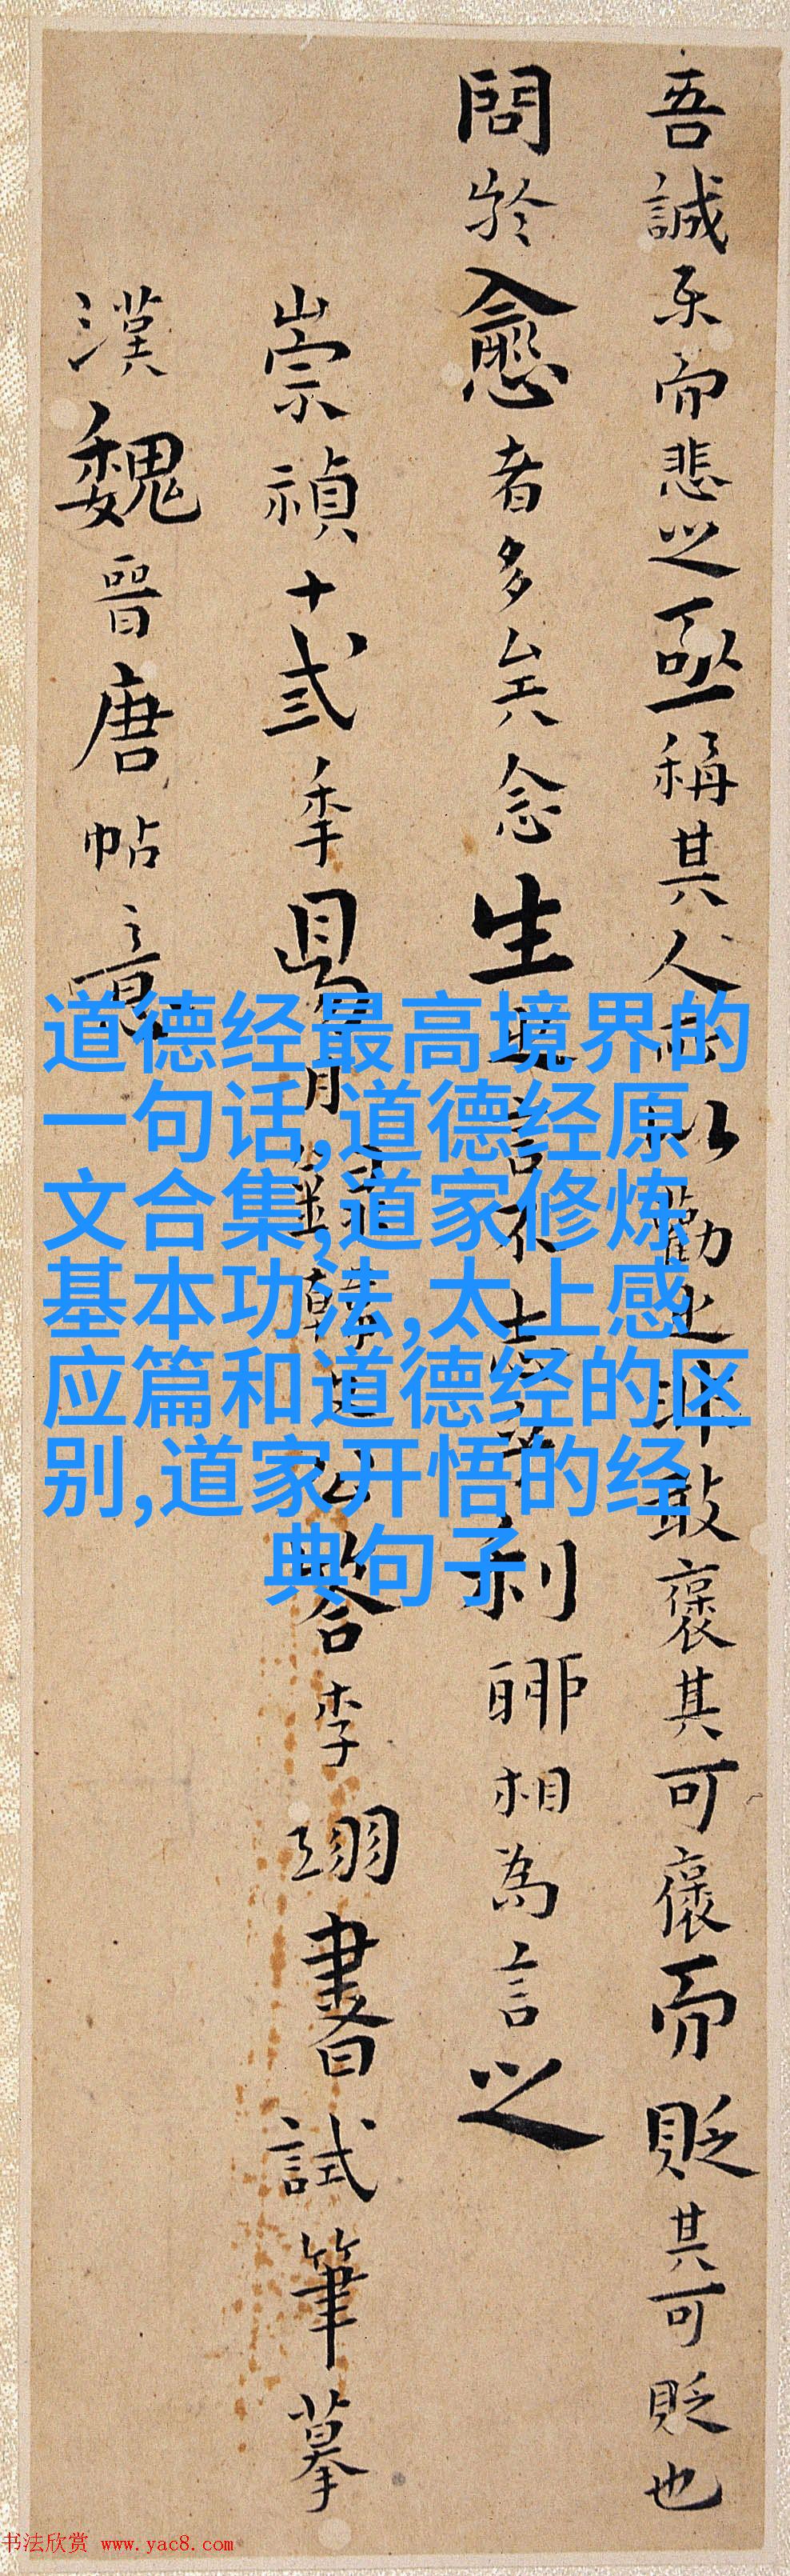 吾誠樂而悲之亟稱其人而以勸之非敢褒其可褒而貶其可貶也
問於愈者多矣念生
利耶相為言之
崇禎十弎季
李翊書試筆摹
漢魏晉唐帖意
道德经最高境界的
一句话,道德经原
文合集,道家修炼
基本功法,太上感
应篇和道德经的区
别,道家开悟的经
典句子
书法欣赏 www.yac8.com